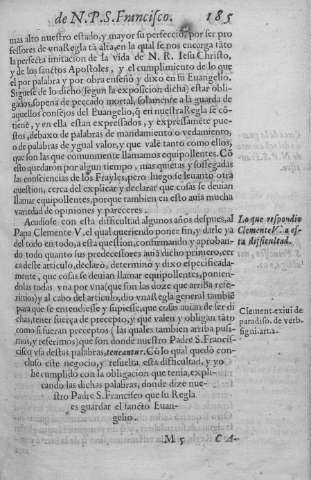 de N.P.S. Francisco. 185
mas alto nuestro estado, y mayor su perfeccio, por ser pro
fessores de vna Regla tã alta, en la qual se nos encarga tãto
la perfecta imitacion de la vida de N. R. Iesu Christo,
y de los sanctos Apostoles, y el cumplimiento de lo que
el por palabra y por obra enseñò y dixo en su Euangelio.
Siguese de lo dicho (segun la exposicion dicha) estar obli-
gados, so pena de peccado mortal, solamente a la guarda de
aquellos consejos del Euangelio, q̃ en nuestra Regla se cõ-
tienẽ, y en ella estan expressados, y expressamẽte pue-
stos, debaxo de palabras de mandamiento o vedamiento,
o de palabras de ygual valor, y que valẽ tanto como ellos,
que son las que comunmente llamamos equipollentes. Cõ
esto quedaron por algun tiempo, mas quietas y sossegadas
las consciencias de los Frayles, pero luego se leuanto otra
question, cerca del explicar y declarar que cosas se deuian
llamar equipollentes, porque tambien en esto auia mucha
variedad de opiniones y pareceres.
Acudiose con esta difficultad algunos años despues, al
Papa Clemente V. el qual queriendo poner fin, y darle ya
del todo en todo, a esta question, confirmando y aproban-
do todo quanto sus predecessores an(n)a dicho primero, cer
ca deste articulo, declarò, determinò y dixo especificada-
mente, que cosas se deuian llamar equiponentes, ponien-
dolas todas vna por vna (que son las doze que arriba refe-
rimos) y al cabo del articulo, dio vna Regla general tambiẽ
para que se entendiesse y supiesse, que cosas auian de ser di
chas, tener fuerça de precepto, y que valen y obligan tãto
como si fueran preceptos (las quales tambien arriba pusi-
mos, y referimos) que son donde nuestro Padre S. Franci-
sco vsa destas palabras, teneantur. Cõ lo qual quedò con-
cluso este negocio, y resuelta esta difficultad, y yo
he cumplido con la obligacion que tenia, expli-
cando las dichas palabras, donde dize nue-
stro Padre S. Francisco que su Regla
es guardar el sancto Euan-
gelio.
M 5 CA-
Lo que respondio
Clemente V. a es-
ta difficultad.
Clement. exiui de
paradiso. de verb.
signi. art. 2.